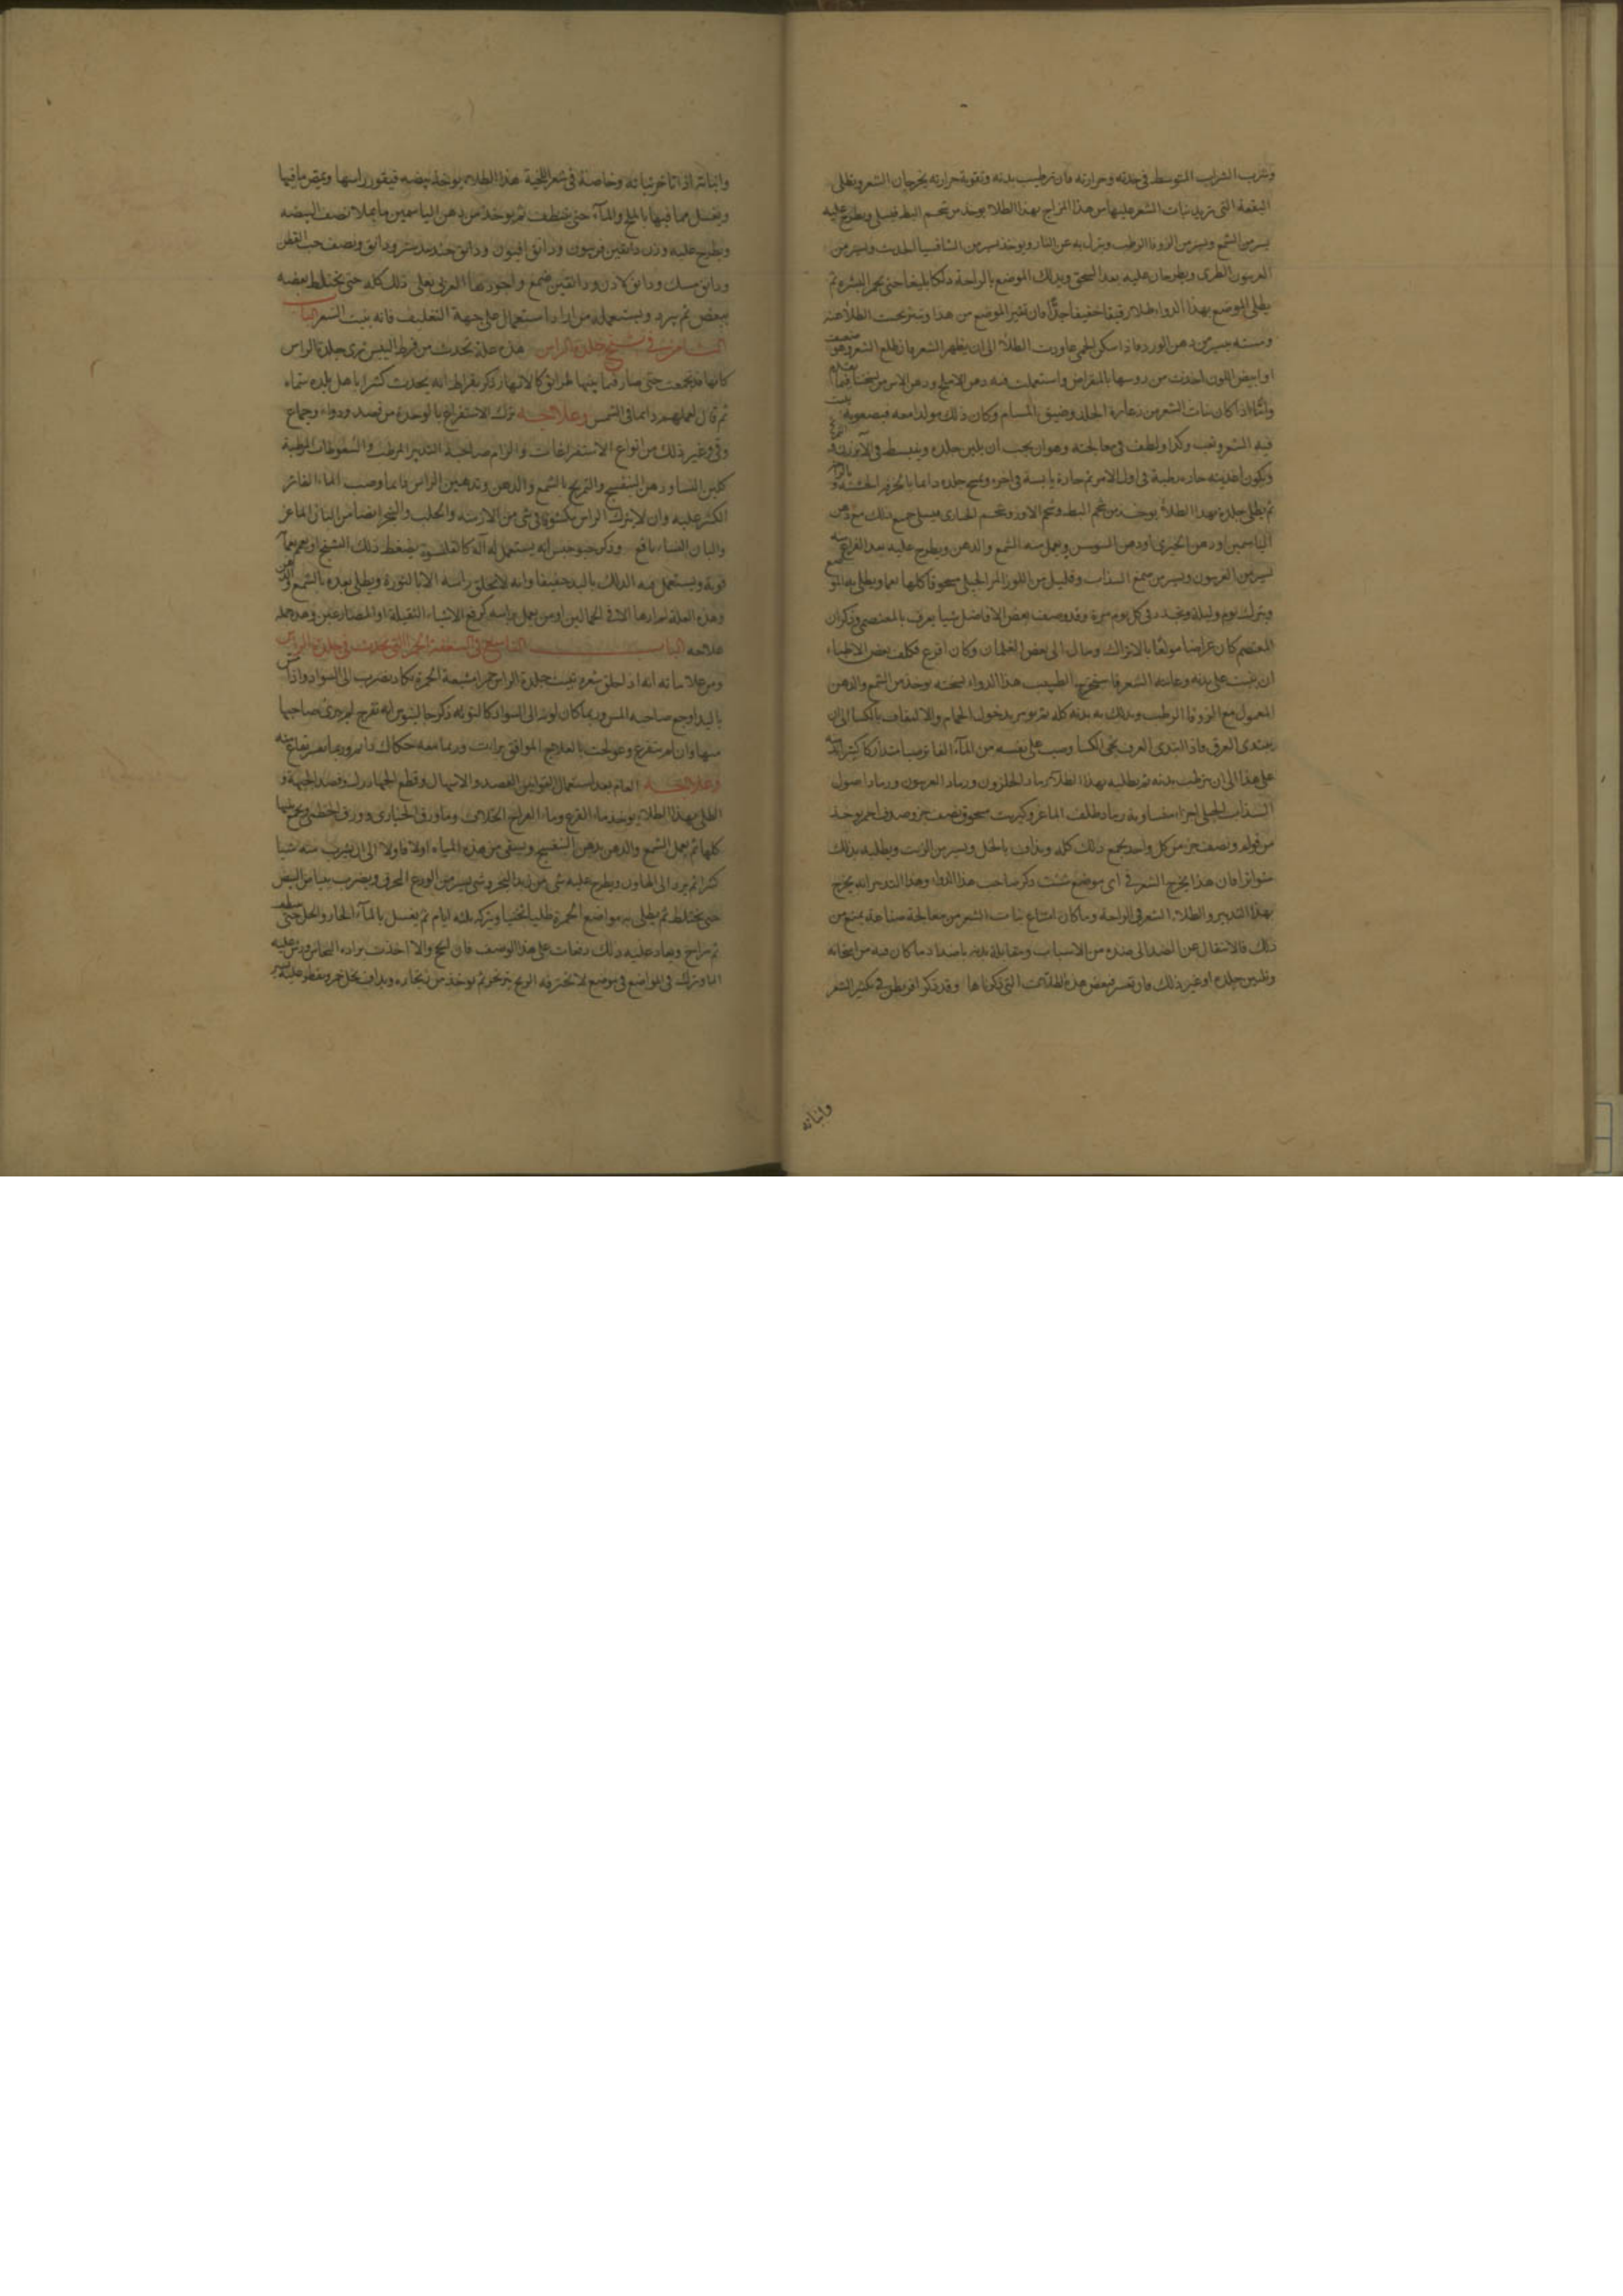 وشرب الشراب المتوسط في حدته وحرارته فان ترطيب بدنه وتقوية حرارته يخرجان الشعر ويطلى
البقعة التي يريد نبات الشعر عليها من هذا المزاج بهذا الطلاء يوخذ من شحم البط فيسلى ويطرح عليه
يسير من الشمع ويسير من الزوفا الرطب وينزل به عن النار ويوخذ يسير من الثافسيا الحديث ويسير من
الفربيون الطرى ويطرحان عليه بعد السحق ويدلك الموضع بالراحة دلكا بليغا حتى يحمر البشرة ثم
يطلى الموضع بهذا الدواء طلاء رقيقا خفيفا جدا فان تغير الموضع من هذا تحت الطلاء عنه
بيسير من دهن الورد فاذا سكن الحمى عاودت الطلاء الى ان يظهر الشعر فان طلع الشعر وهو ضعيف
او ابيض اللون اخذت من روسها بالمقراض واستعملت فيه دهن الاملج ودهن الاس
واما اذا كان نبات الشعر من زعارة الجلد وضيق المسام وكان ذلك مولدا معه فبصعوبة
فيه الشعر ولطف في معالجته وهو ان يجب ان يلين جلده وينبسط في الآبزن
ويكون اغذيته حارة رطبة في اول الامر ثم حارة يابسة في اخره ويمسح جلده دايما بالخرقة الخشنة
ثم يطلى جلده بهذا الطلاء يوخذ من شحم البط وشحم الاوز وشحم الحبارى فيسلى جميع ذلك مع دهن
الياسمين او دهن الخيرى او دهن السوسن ويعمل منه الشمع والدهن ويطرح عليه بعد الفراغ منه
يسير من الفربيون ويسير من صمغ السذاب وقليل من اللوز المر الجبلى مسحوقا كلها نعما ويطلى به
ويترك يوم وليلة ويجدد في كل يوم مرة وقد وصف بعض الافاضل شيا يعرف بالمعتصمي وذكر ان
المعتصم كان مولعا بالاتراك ومال الى بعض الغلمان وكان اقرع فكلف بعض الاطباء
ان ينبت على بدنه وعانته الشعر فاستخرج الطبيب هذا الدواء نسخته يوخذ من الشمع والدهن
المعمول مع الزوفا الرطب ويدلك به بدنه كله ثم يومر بدخول الحمام والالتفاف بالكسا الى ان
يبتدى العرق فاذا ابتدى العرق نحى الكسا وصب على نفسه من الماء الفاتر
على هذا الى ان يرطب بدنه ثم يطليه بهذا الطلاء رماد الحلزون ورماد الفربيون ورماد اصول
السذاب الجبلى اجزا متساوية رماد ظلف الماعز وكبريت مسحوق نصف جزو
من كل واحد يجمع ذلك كله ويذاف بالخل ويسير من الزيت ويطليه بذلك
متواترا فان هذا يخرج الشعر في اى موضع شئت ذكر صاحب هذا الدواء وهذا التدبير انه يخرج
بهذا التدبير والطلاء الشعر في الراحة وما كان امتناع نبات الشعر من معالجة صناعة يمنع من
ذلك فالانتقال عن الضد الى ضده من الاسباب ومقابلة بدنه باضداد ما كان فيه من
وتليين جلده او غير ذلك فبعض هذه الطلآت التي ذكرناها وقد ذكر اقريطن في تكثير الشعر
وانباته
وانباته اذا تاخر نباته وخاصة في شعر اللحية هذا الطلاء يوخذ بيضه فيقور راسها ويفرغ ما فيها
ويغسل ما فيها بالملح والماء حتى ينظف ثم يوخذ من دهن الياسمين ما يملا نصف البيضه
ويطرح عليه وزن دانقين فربيون ودانق افيون ودانق جندبيدستر ودانق ونصف حب القطن
ودانق مسك ودانق لاذن ودانقين صمغ واجودها العربى يغلى ذلك كله حتى يختلط بعضه
ببعض ثم يبرد ويستعمله من اراد استعمال على جهة التغليف فانه ينبت الشعر الباب
الثامن في تشنج جلدة الراس هذه علة تحدث من فرط اليبس ترى جلدة الراس
كانها قد تجمعت حتى صار فيما بينها طرائق كالانهار ذكر بقراط انه يحدث كثيرا باهل بلده
ثم قال لعملهم دايما في الشمس وعلاجه ترك الاستفراغ بالوحدة من فصد ودواء وجماع
وقى وغير ذلك من انواع الاستفراغات والزام صاحبه التدبير المرطب والسعوطات المرطبة
كلبن النسا ودهن البنفسج والتمريخ بالشمع والدهن وتدهين الراس دايما وصب الماء الفاتر
الكثير عليه وان لا يترك الراس بكشوف في شى من الازمنة والحلب والتبخر ايضا من البان الماعز
والبان النساء نافع وذكر جالينوس انه يستعمل له آلة كالقلنسوة يضغط ذلك التشنج
قوية ويستعمل فيه الدلك باليد خفيفا وانه لا يحلق راسه الا بالنورة ويطلى بعده بالشمع والدهن
وهذه العلة لم ارها الا في الحمالين او من يعمل براسه كرفع الاشياء الثقيلة او المصارعين وهذه جملة
علاجه الباب التاسع في السعفة الحمرا التي تحدث في جلدة الراس
ومن علاماته انه اذا حلق شعره تبينت جلدة الراس حمرا مشبعة الحمرة تكاد تضرب الى السواد واذا مس
باليد اوجع صاحبه المس وربما كان لونه الى السواد كالتوته ذكر جالينوس انه تقرح لم يبرى صاحبها
منها وان لم يتقرح وعولجت بالعلاج الموافق برات وربما معه حكاك دايم
وعلاجه العام بعد استعمال القوانين الفصد والاسهال وقطع الجهارك وفصد الجبهة و
الطلى بهذا الطلاء يوخذ ماء القرع وماء وماء ورق الخبازى وورق الخطمى ويجمع
كلها ثم يعمل الشمع والدهن بدهن البنفسج ويسقى من هذه المياه اولا فاولا الى ان يشرب منه شيا
كثيرا ثم يرد الى الهاون ويطرح عليه شى من زبد البحر وشى يسير من الودع المحرق ويضرب ببياض البيض
حتى يختلط ثم يطلى به مواضع الحمرة طليا ثخينا ويتركه ثلثه ايام ثم يغسل بالماء الحار والخل حتى
ثم يراح ويعاد عليه ذلك دفعات على هذا الوصف فان نجح والا اخذت برادة النحاس ورش عليه
الماء وترك في موضع لا تخترقه الريح ثم يوخذ من زنجاره ويداف بخل خمر ويقطر عليه